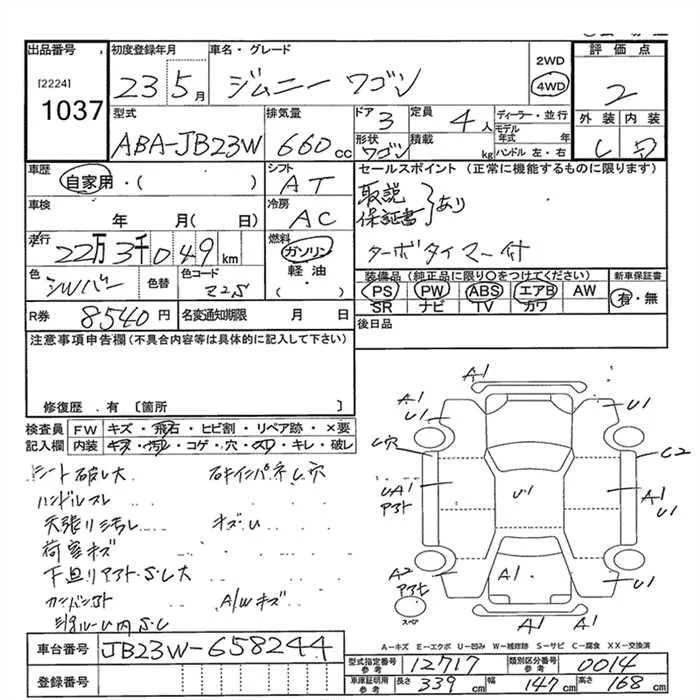 出品番号
[2224]
1037
初度登録年月
23 5月
車名・グレード
ジムニー ワゴン
2WD
4WD
評価点
2
外装 内装
型式
ABA-JB23W
排気量
660cc
ドア 3
定員 4人
形状 ワゴン
積載 kg
ディーラー・並行
モデル年式 年
ハンドル 左・右
車歴
自家用・( )
シフト
AT
セールスポイント (正常に機能するものに限ります)
取説
保証書 あり
ターボタイマー付
車検
年 月( 日)
冷房
AC
走行
22万3千049km
燃料
ガソリン
軽油・
( )
色
シルバー
色替
色コード
Z2S
装備品 (純正品に限り〇をつけてください)
新車保証書
PS PW ABS エアB AW
SR ナビ TV カワ
有・無
R券 8540円
名変通知期限 月 日
後日品
注意事項申告欄(不具合内容等は具体的に記入して下さい)
修復歴 . 有 [箇所 ]
検査員記入欄
FW キズ・飛石・ヒビ割・リペア跡・×要
内装 キズ・汚れ・コゲ・穴・スレ・キレ・破レ
シート破レ大
ハンドルスレ
天張り汚レ
キズU
荷室キズ
下廻リサビ.S.大
A/Wキズ
A1
A1
U1
U1
C2
UA1
U1
A1
U1
A2
A1
U1
スペア
A1
A1
A-キズ E-エクボ U-凹み W-補修跡 S-サビ C-腐食 XX-交換済
車台番号 JB23W-658244
登録番号
型式指定番号参考 12717
類別区分番号参考 0014
車庫証明用参考 長さ 339cm 幅 147cm 高さ 168cm